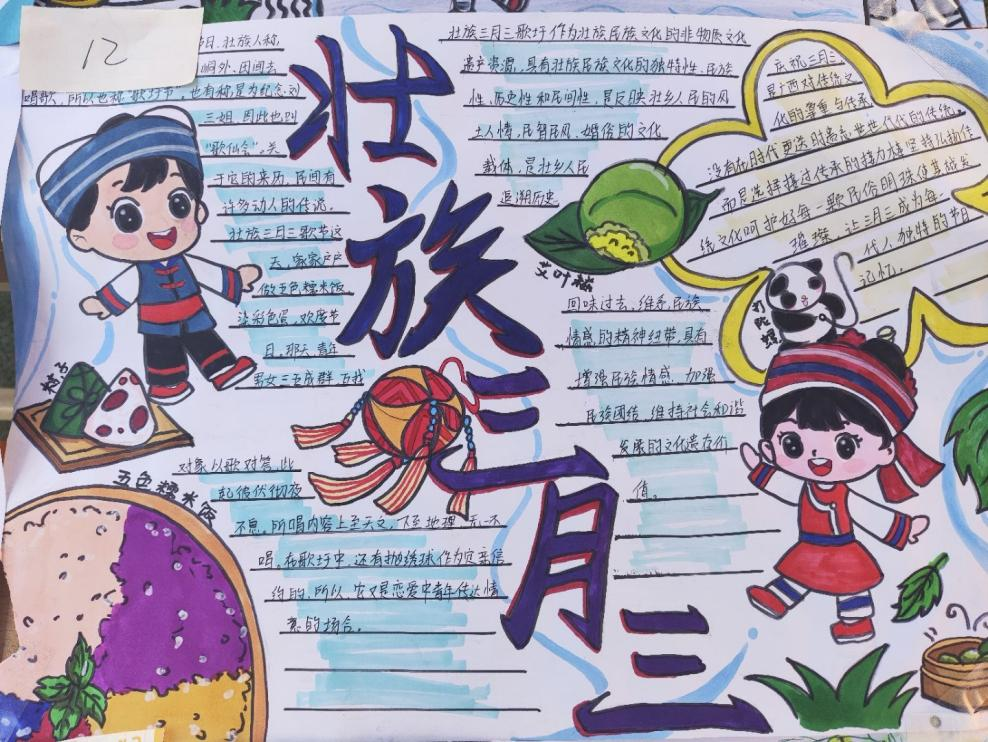 12
节日,壮族人称,
峒外、田间去
唱歌,所以也称"歌圩节",也有称是为纪念刘
三姐,因此也叫
"歌仙会"。关
于它的来历,民间有
许多动人的传说。
壮族三月三歌节这
天,家家户户
做五色糯米饭,
染彩色蛋,欢度节
日,那天青年
男女三五成群,互找
对象以歌对答,此
起彼伏彻夜
不息,所唱内容上至天文,下至地理,无一不
唱,在歌圩中,还有抛绣球作为定亲信
约的,所以,它又是恋爱中青年传达情
意的场合。
粽子
五色糯米饭
壮族三月三
壮族三月三歌圩作为壮族民族文化的非物质文化
遗产资源,具有壮族民族文化的独特性、民族
性、历史性和民间性,是反映壮乡人民的风
土人情,民智民风、婚俗的文化
载体,是壮乡人民
追溯历史
艾叶糍
回味过去、维系民族
情感的精神纽带,具有
增强民族情感、加强
民族团结,维持社会和谐
发展的文化遗产价
值。
庆祝三月三
是广西对传统文
化的尊重与传承,
没有在时代更迭时遗忘世世代代的传统。
而是选择接过传承的接力棒坚持弘扬传
统文化呵护好每一颗民俗明珠使其焕发
璀璨,让三月三成为每
代人独特的节日
记忆。
打陀螺